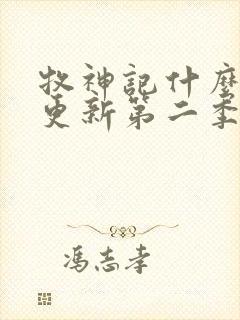 牧神記什麼
更新第二季
馮志孝